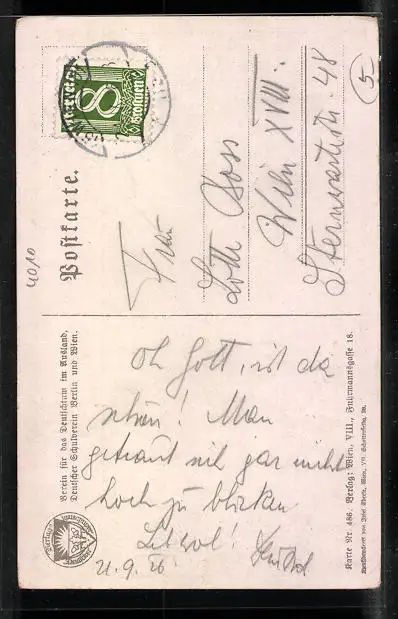 Postkarte.
Österreich
8
Groschen
5
4010
Frau
Lotte
Wien XVIII.
Sternwartestr. 48
Verein für das Deutschtum im Ausland,
Deutscher Schulverein Berlin und Wien.
Oh Gott, ist da
schön! Man
getraut sich gar nicht
hoch zu blicken
21.9.26
Karte Nr. 486. Verlag: Wien, VIII., Fuhrmannsgasse 18.